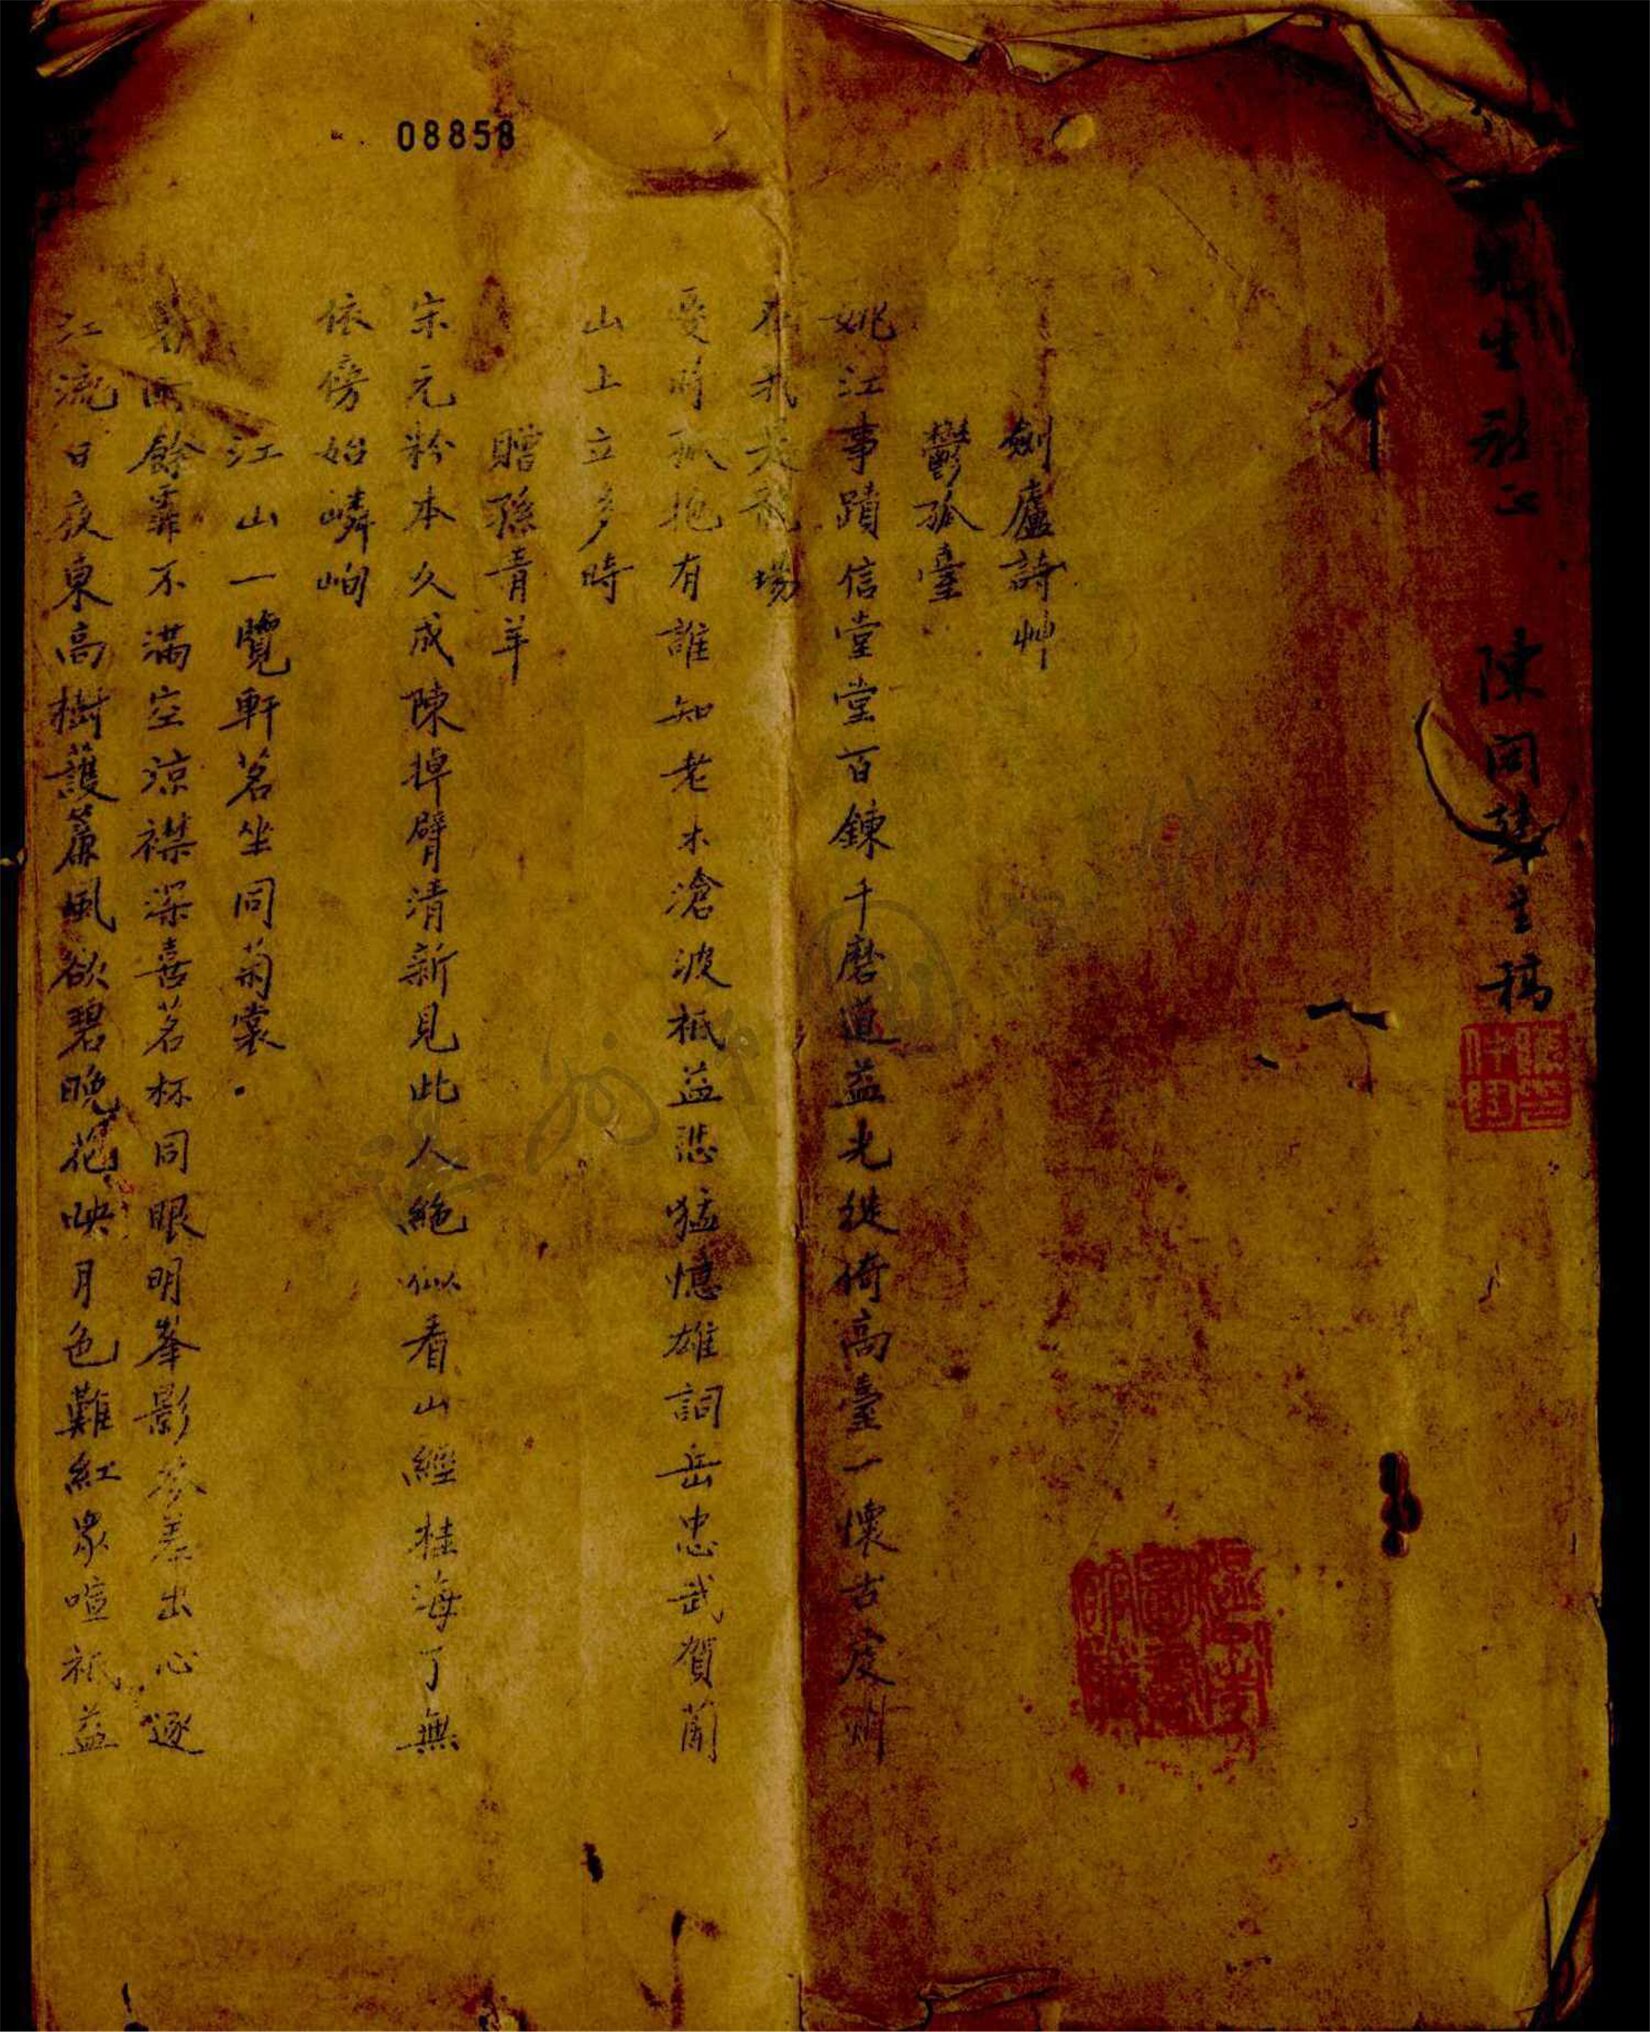 08858
生 正 陳閎慧呈稿
劍廬詩艸
鬱孤臺
姚江事蹟信堂堂百鍊千磨道益光徙倚高臺一懷古虔州
龍場
孤抱有誰知老木滄波祇益悲猛憶雄詞岳忠武賀蘭
山上立多時
贈孫青羊
宋元粉本久成陳掉臂清新見此人絕似看山經桂海了無
依傍始嶙峋
江山一覽軒茗坐同菊裳
餘霏不滿空涼襟深喜茗杯同眼明峯影參差出心逐
江流日夜東高樹護簷風欲碧晚花映月色難紅眾喧祇益